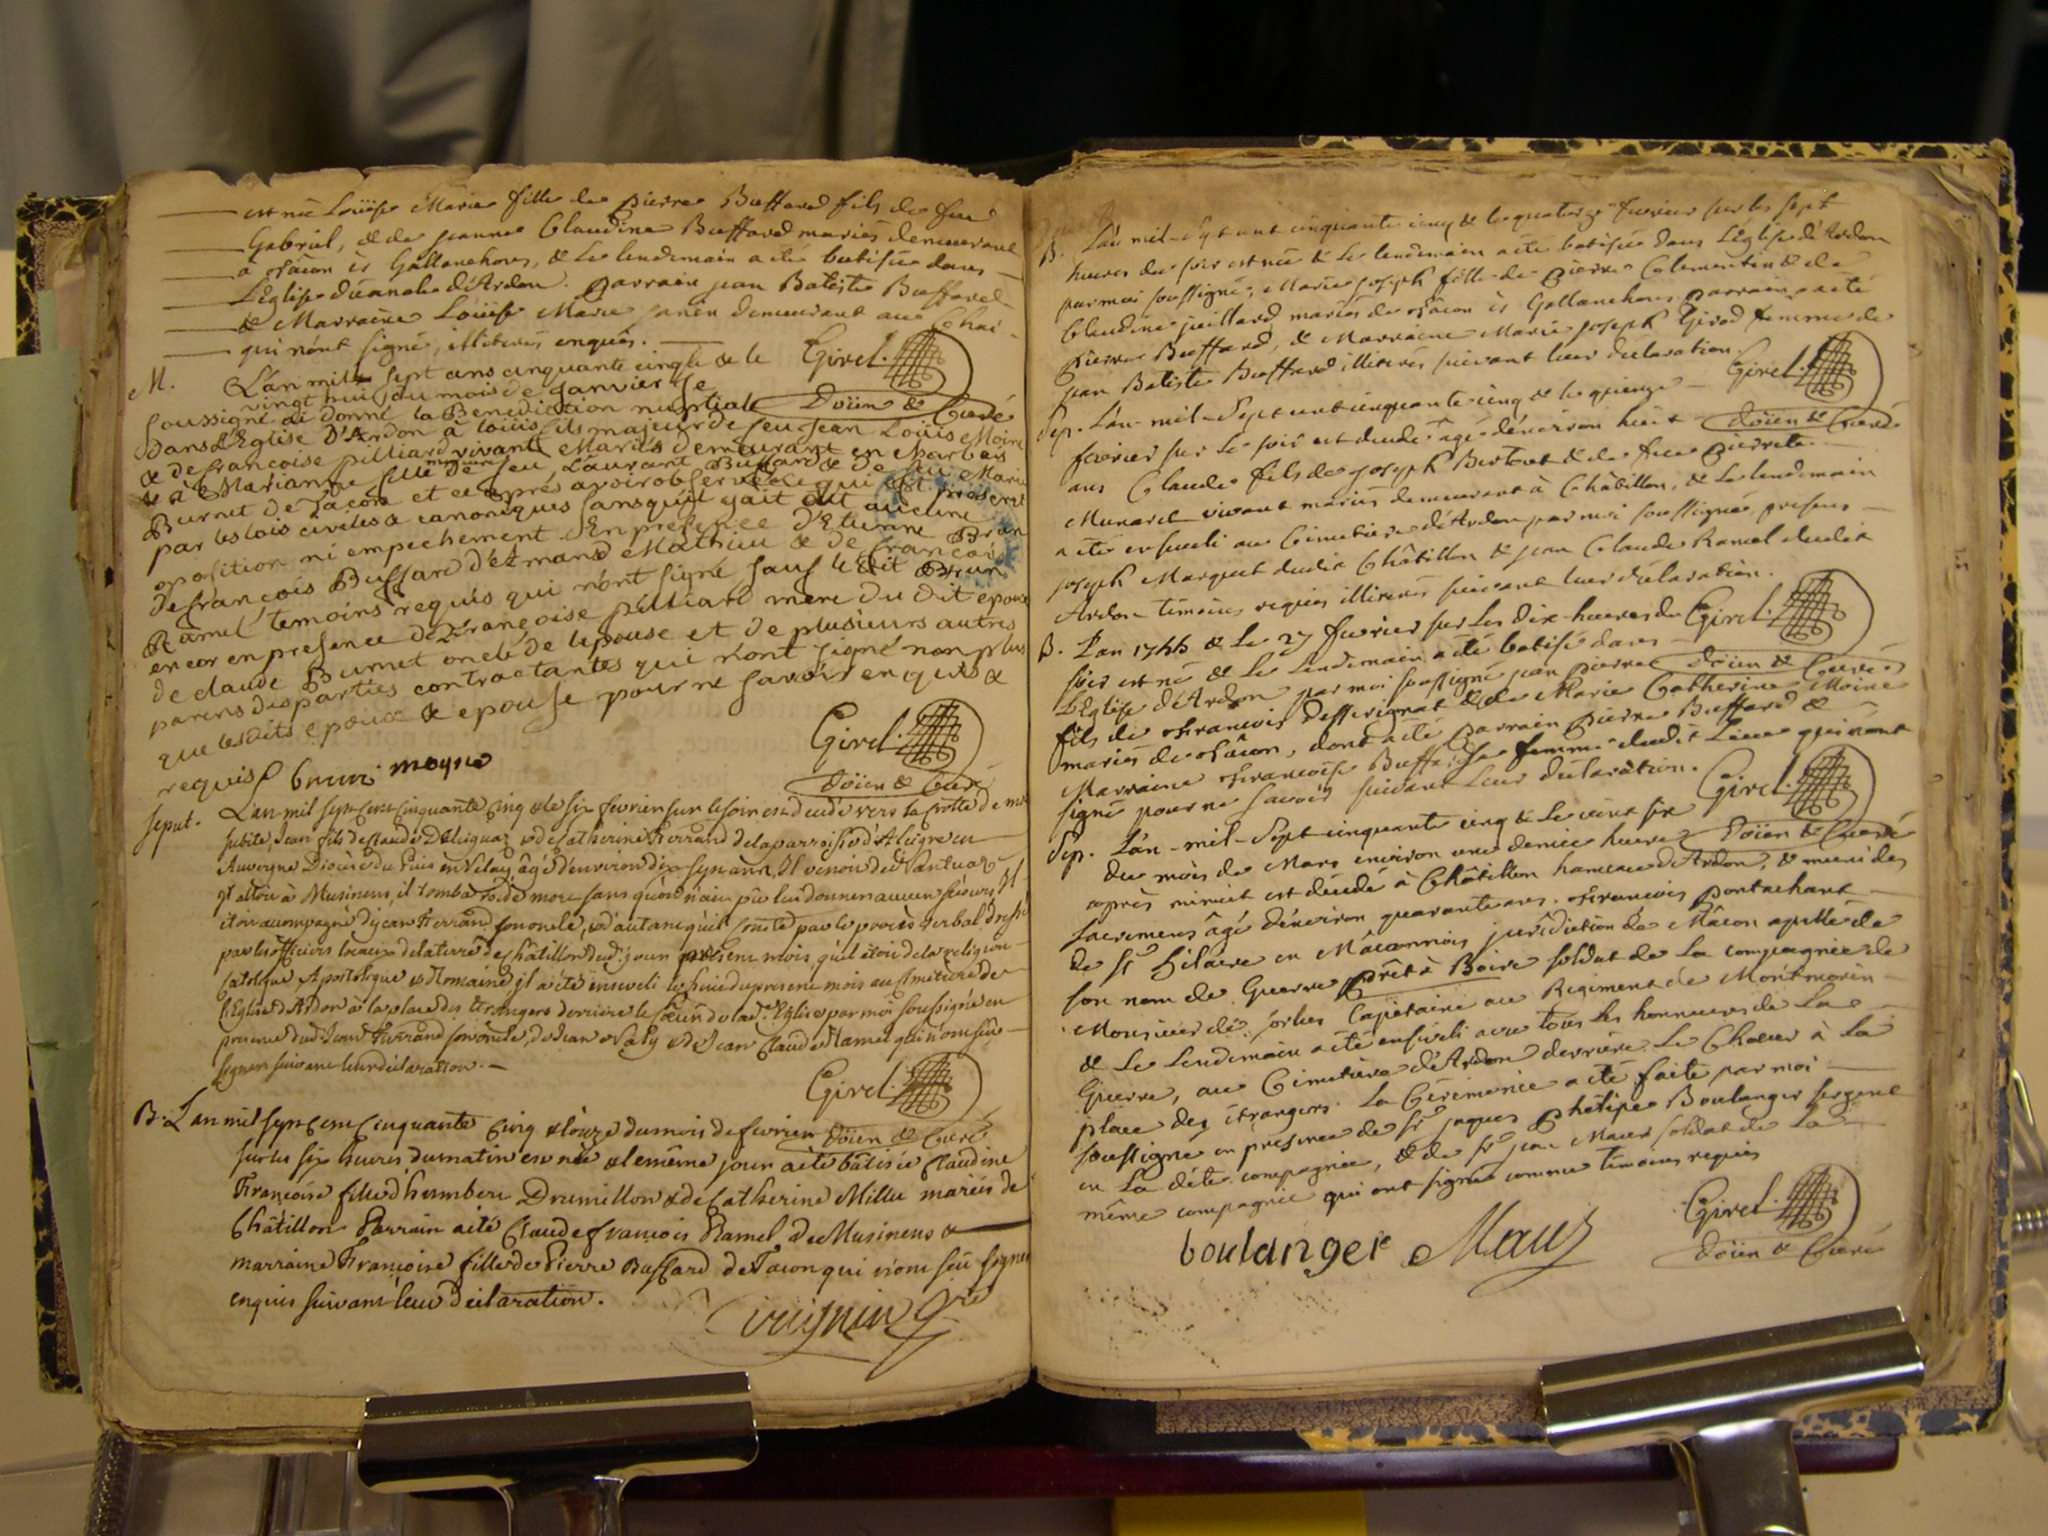 est née Loüise Marie fille de Pierre Buffard fils de feu
Gabriel, & de jeanne Claudine Buffard mariés demeurant
à ffâcon ès Gallanchons, & le lendemain a été batisée dans
L'Eglise dudit d'Ardon. Parrain jean Batiste Buffard
& Marraine Loüise Marie demeurant au
qui n'ont signé, illiterés enquis.
Girel.
Doïen & Curé
M. L'an mil sept cens cinquante cinq & le
vingt huit du mois de janvier je
soussigné ai donné la Benediction nuptiale
dans l'Eglise D'Ardon à loüis fils majeur de feu Jean Loüis Moine
& de francoise pilliard vivante Mariés demeurant en
& à Marianne fille de feu Laurant Buffard & de
Burnet de facon et ce aprés avoir observé ce qui est prescrit
par les lois civiles & canoniques sans qu'il y ait eut aucune
oposition ni empechement. En presence d'Etienne Brun
de francois Buffard d'Ermand Mathieu & de francois
Ramel temoins requis qui n'ont signé sauf le dit Brun
encor en presence de francoise pilliard mere du dit epoux
de claude Burnet oncle de l'epouse et de plusieurs autres
parens des parties contractantes qui n'ont signé non plus
que lesdits epoux & epouse pour ne savoir enquis &
requis brun moyne
Girel.
Doïen & Curé
seput. L'an mil sept cent cinquante cinq & le six fevrier sur le soir est decedé vers la Crotte de mort
subite, Jean fils de Claude Deliqua & de Catherine Ferrand de la paroisse d'Aleigre en
Auvergne Diocèse du Puis en Velay, âgé d'environ dix sept ans, Il venoit de Nantua &
et alloit à Musinens, il tomba roide mort sans qu'on n'ait pû lui donner aucun secours, Il
étoit accompagné de jean Ferrand son oncle, & d'autant qu'il conste par le procès verbal dressé
par les officiers locaux de la terre de Châtillon dud. jour present mois qu'il étoit de la religion
Catolique Apostolique & Romaine, il a été enseveli le huit du present mois au Cimetiere de
l'Eglise d'Ardon à la place des étrangers derriere le Cœur de lad. Eglise par moi soussigné en
presence dud. Jean Ferrand son oncle, de Jean & de Jean Claude Ramel qui n'ont scû
signer suivant leur déclaration.
Girel.
Doïen & Curé
B. L'an mil sept cent cinquante cinq & l'onze du mois de fevrier
sur les six heures du matin est née & le même jour a été bâtisée Claudine
Françoise fille d'humbert Drumillon & de Catherine Millet mariés de
Châtillon Parrain a été Claude françois Ramel de Musinens &
marraine Françoise fille de Pierre Buffard de facon qui n'ont scû signer
enquis suivant leur déclaration.
B. L'an mil sept cent cinquante cinq & le quatorze fevrier sur les sept
heures du soir est née & le lendemain a été batisée dans L'Eglise d'Ardon
par moi soussigné, Marie joseph fille de Pierre Calementin & de
Claudine juillard mariés de ffâcon ès Gallanchons. Parrain a été
Pierre Buffard, & Marraine Marie joseph Girod femme de
jean Batiste Buffard illiterés suivant leur déclaration.
Girel.
Doïen & Curé
Sep. L'an mil Sept cent cinquante cinq & le quinze
fevrier sur le soir est decedé âgé d'environ huit
ans Claude fils de joseph Bertout & de feue Pierrete
Munaret vivant mariés demeurant à Châtillon, & le lendemain
a été enseveli au Cimetiere d'Ardon par moi soussigné, presens
joseph Marquet dudit Châtillon & jean Claude Ramel dudit
Ardon témoins requis illiterés suivant leur déclaration.
Girel.
Doïen & Curé
B. L'an 1755 & le 27 fevrier sur les dix heures du
soir est né & le lendemain a été batisé dans
L'Eglise d'Ardon par moi soussigné jean pierre
fils de ffrancois Desserignat & de Marie Catherine Moine
mariés de ffâcon, dont a été Parrain Pierre Buffard &
Marraine ffrancoise Buffard sa femme dudit Lieu qui n'ont
signé pour ne savoir suivant leur déclaration.
Girel.
Doïen & Curé
Sep. L'an mil Sept cinquante cinq & le vint six
du mois de Mars environ une demie heure
après minuit est décédé à Châtillon hameau d'Ardon, & muni des
sacremens âgé d'environ quarante ans. ffrancois Pontachant
de St. hilaire en Mâconnois jurisdiction de Mâcon apellé de
son nom de Guerre Prêt à Boire soldat de la compagnie de
Monsieur de Capitaine au Regiment de Montmorin
& le lendemain a été enseveli avec tous les honneurs de la
Guerre, au Cimetiere d'Ardon derriere le Chœur à la
place des étrangers. La Cérémonie a été faite par moi
soussigné en presence de Sr. jaques Phélipe Boulanger sergent
en la dite compagnie, & de Sr. jean Maur soldat de la
même compagnie qui ont signé comme témoins requis
Girel.
Doïen & Curé
boulanger Maur